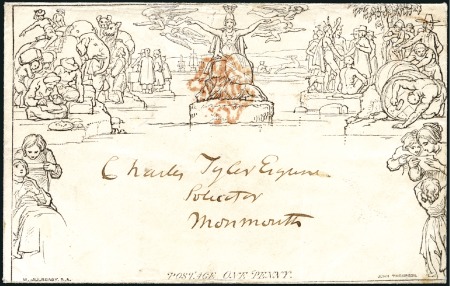 Charles Tyler Esquire
Solicitor
Monmouth
POSTAGE ONE PENNY.
W. MULREADY. R.A.
JOHN THOMPSON